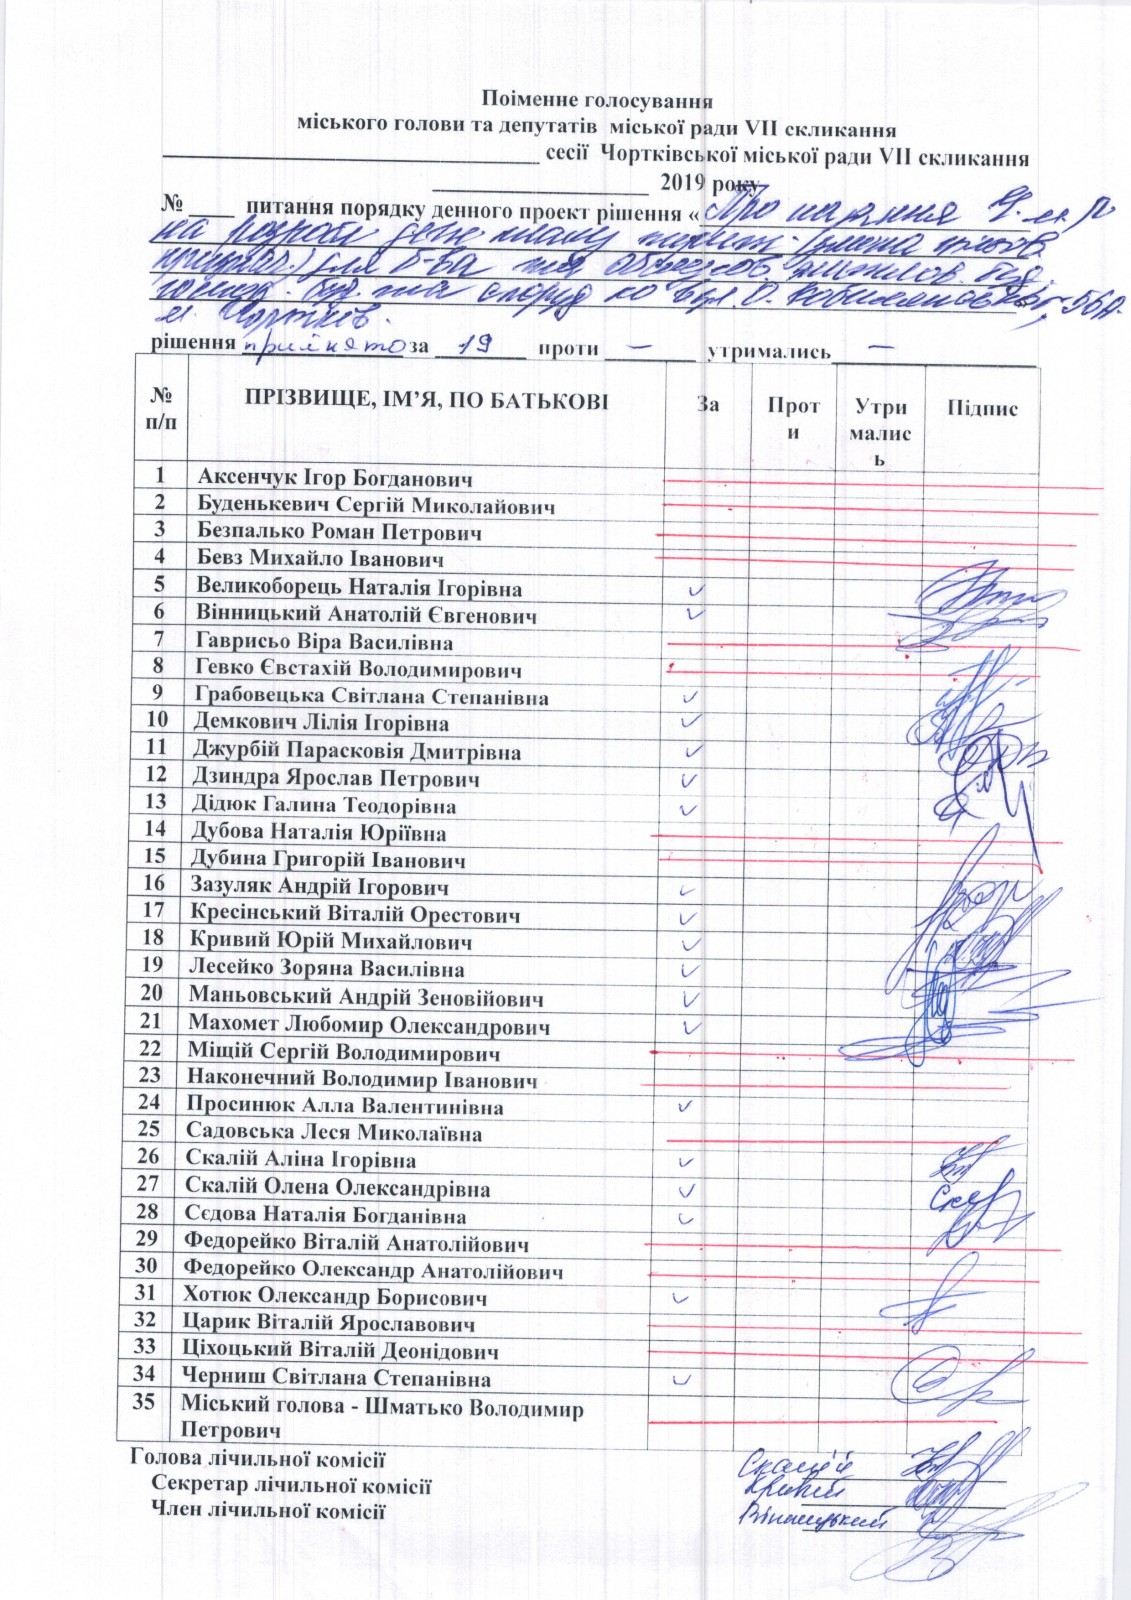 Поіменне голосування
міського голови та депутатів міської ради VII скликання
сесії Чортківської міської ради VII скликання
2019 року
№ ____ питання порядку денного проект рішення « Про надання
на розробку
для б-ва
споруд по вул. О. 56А
м. Чортків.
рішення прийнято за 19 проти – утримались –
№ п/п ПРІЗВИЩЕ, ІМ’Я, ПО БАТЬКОВІ За Проти Утримались Підпис
1 Аксенчук Ігор Богданович
2 Буденькевич Сергій Миколайович
3 Безпалько Роман Петрович
4 Бевз Михайло Іванович
5 Великоборець Наталія Ігорівна ✓
6 Вінницький Анатолій Євгенович ✓
7 Гаврисьо Віра Василівна
8 Гевко Євстахій Володимирович
9 Грабовецька Світлана Степанівна ✓
10 Демкович Лілія Ігорівна ✓
11 Джурбій Парасковія Дмитрівна ✓
12 Дзиндра Ярослав Петрович ✓
13 Дідюк Галина Теодорівна ✓
14 Дубова Наталія Юріївна
15 Дубина Григорій Іванович
16 Зазуляк Андрій Ігорович ✓
17 Кресінський Віталій Орестович ✓
18 Кривий Юрій Михайлович ✓
19 Лесейко Зоряна Василівна ✓
20 Маньовський Андрій Зеновійович ✓
21 Махомет Любомир Олександрович ✓
22 Міщій Сергій Володимирович
23 Наконечний Володимир Іванович
24 Просинюк Алла Валентинівна ✓
25 Садовська Леся Миколаївна
26 Скалій Аліна Ігорівна ✓
27 Скалій Олена Олександрівна ✓
28 Сєдова Наталія Богданівна ✓
29 Федорейко Віталій Анатолійович
30 Федорейко Олександр Анатолійович
31 Хотюк Олександр Борисович ✓
32 Царик Віталій Ярославович
33 Ціхоцький Віталій Деонідович
34 Черниш Світлана Степанівна ✓
35 Міський голова - Шматько Володимир
Петрович
Голова лічильної комісії Скалій
Секретар лічильної комісії Кривий
Член лічильної комісії Вінницький